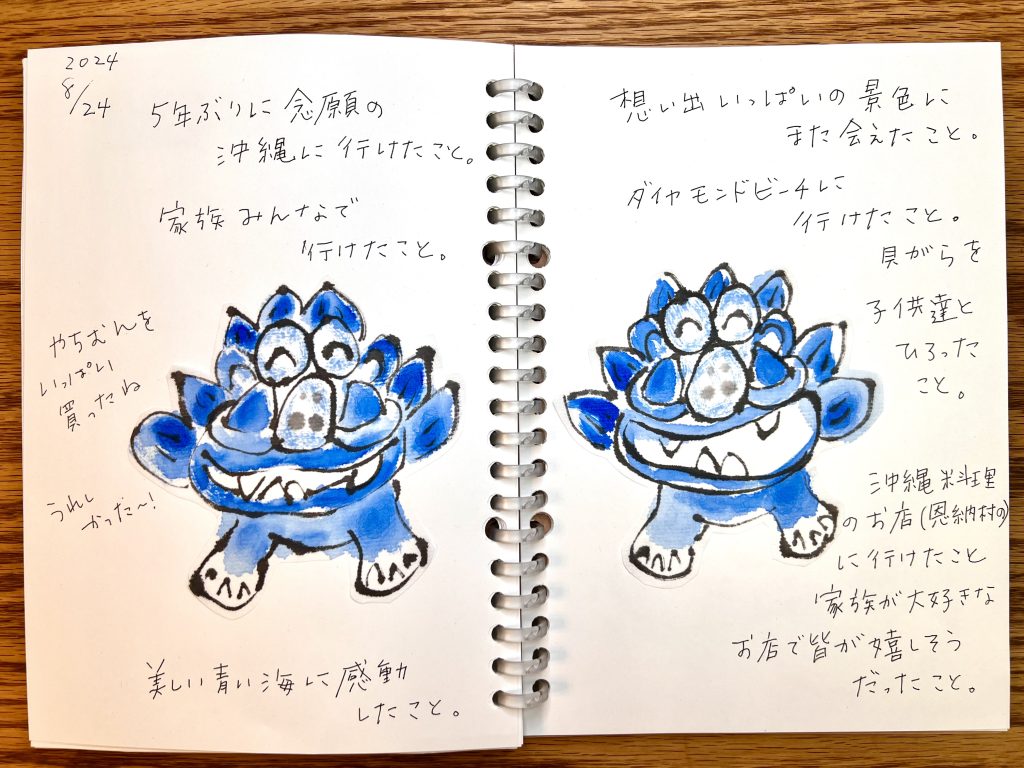 2024
8/24
5年ぶりに念願の
沖縄に行けたこと。
家族みんなで
行けたこと。
やちむんを
いっぱい
買ったね
うれし
かった〜!
美しい青い海に感動
したこと。
想い出いっぱいの景色に
また会えたこと。
ダイヤモンドビーチに
行けたこと。
貝がらを
子供達と
ひろった
こと。
沖縄料理
のお店(恩納村の)
に行けたこと
家族が大好きな
お店で皆が嬉しそう
だったこと。